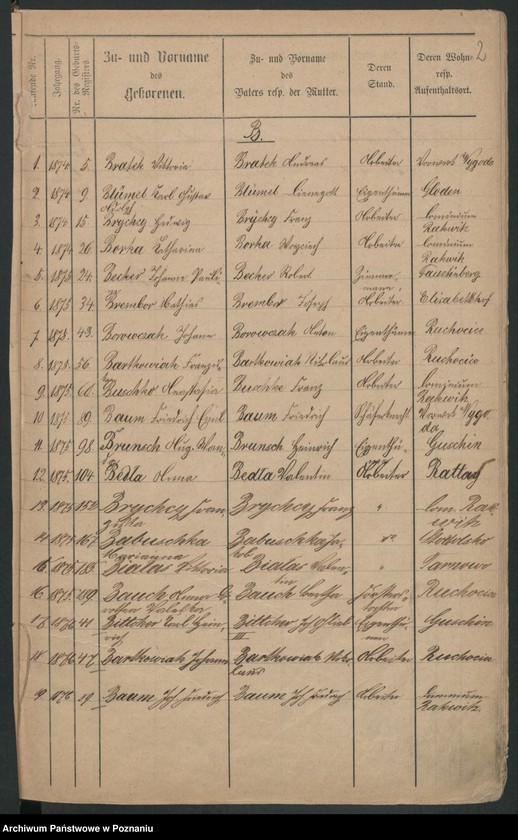 2
Laufende Nr.
Jahrgang.
Nr. des Geburts-Registers.
Zu- und Vorname des Geborenen.
Zu- und Vorname des Vaters resp. der Mutter.
Deren Stand.
Deren Wohn- resp. Aufenthaltsort.
B.
1. 1874 5. Bratek Viktoria Bratek Andreas Arbeiter Vorwerk Wygoda
2 1874 9 Blümel Karl Gustav Adolf Blümel Eigenthümer Gloden
3. 1874 15 Brychcy Hedwig Brychcy Franz Arbeiter Dominium Rakwitz
4. 1874 26. Borka Catharina Borka Woyciech Arbeiter Dominium Rakwitz
5. 1875 24. Becker Johanne Becker Robert Zimmermann
6 1875 34. Brembor Mathias Brembor Joseph Arbeiter Elisabethhof
7 1875. 43. Borowczak Johann Borowczak Anton Eigenthümer Ruchocice
8 1875. 56 Bartkowiak Bartkowiak Nikolaus Arbeiter Ruchocice
9. 1875. 60. Buschke Anastasia Buschke Franz Arbeiter Dominium Rakwitz
10 1875 89. Baum Friedrich Emil Baum Friedrich Schäferknecht Vorwerk Wygoda
11 1875 98. Brunsch Hug. Brunsch Heinrich Eigenthü- Guschin
12 1875. 104 Bedla Anna Bedla Valentin Arbeiter Rattay
13 1875 152 Brychcy Brychcy Franz " Dom. Rakwitz
14 1875 167 Babuschka Marianna Babuschka Jakob "
15 1875 183 Bialas Viktoria Bialas Valentin " Tarnowo
16 1875 189 Bauch Bauch Bertha Ruchocice
1876 41 Bittcher Karl Heinrich Bittcher III Eigenthümer Guschin
18 1876 47. Bartkowiak Johann Bartkowiak Nikolaus Arbeiter Ruchocice
19 1876 Baum Joh Friedrich Baum Joh Friedrich Arbeiter Dominium Rakwitz
Archiwum Państwowe w Poznaniu